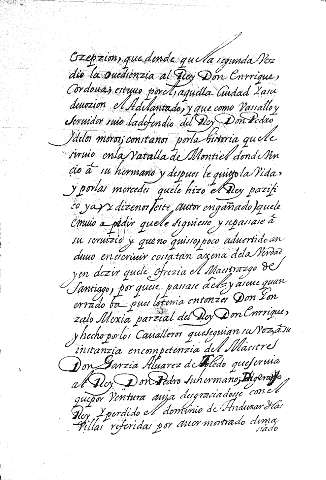 cezpzion, que dende que la segunda Vez
dio la ovedienzia al Rey Don Enrrique,
Cordova, estuvo por el, aquella Ciudad La su
devozion el Adelantado, y que como Vassallo y
servidor suio la defendio del Rey Don Pedro
y de los moros; constanos por la historia que le
sirvio en la Vatalla de Montiel donde Ven
cio a su hermano y despues le quitto la Vida,
y por las mercedes que le hizo el Rey pazifi
co ya, y dizenos este autor engañado, que le
envio a pedir que le siguiesse y se passase a
su servizio y que no quiso, poco advertido an
duvo en escrivir cosa tan axena de la Verdad
y en dezir que le ofrezia el Maestrazgo de
Santiago, por que se passase de la suia en quan
errado va pues lo tenia entonzes Don Gon
zalo Mexia parzial del Rey Don Enrrique,
y hecho por los Cavalleros que seguian su Voz a su
instanzia en competenzia del Maestre
Don Garzia Alvarez de Toledo que servia
al Rey Don Pedro su hermano;
que por Ventura avia desgraciadose con el
Rey y perdido el dominio de Anduxar y las
Villas referidas por aver mostrado dema
siado